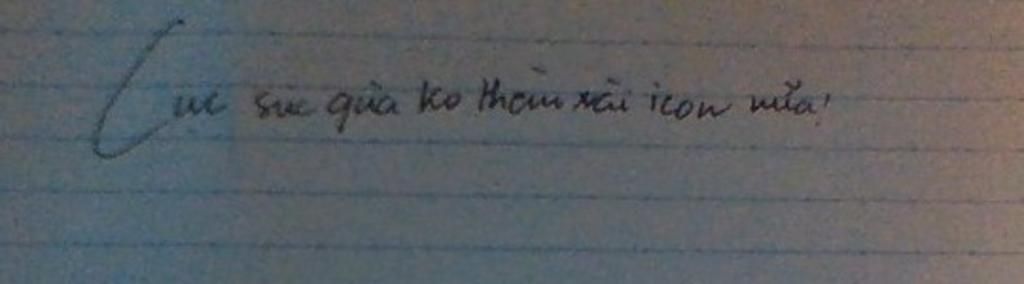 Cục súc quá ko thèm xài icon nữa!